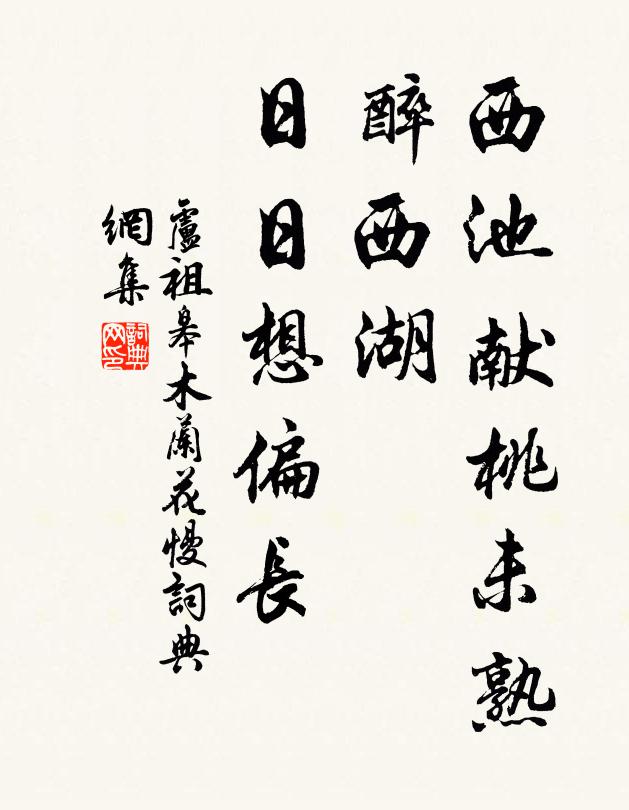 西池献桃未熟
醉西湖
日日想偏長
盧祖皋木蘭花慢詞典
網集
詞典
网印